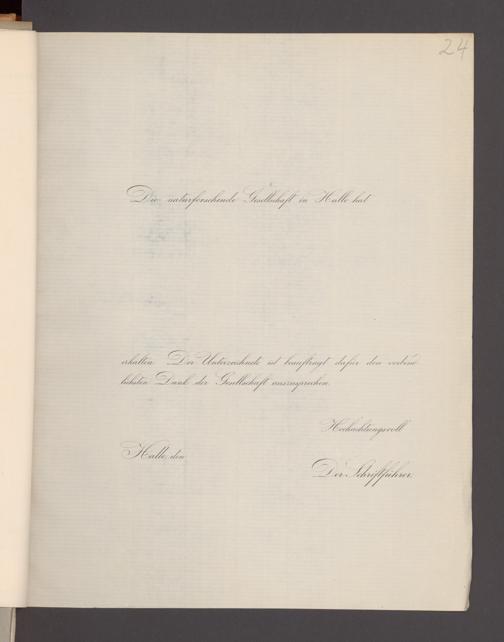 24
Die naturforschende Gesellschaft in Halle hat
erhalten. Der Unterzeichnete ist beauftragt dafür den verbind-
lichsten Dank der Gesellschaft auszusprechen.
Hochachtungsvoll
Halle, den
Der Schriftführer.